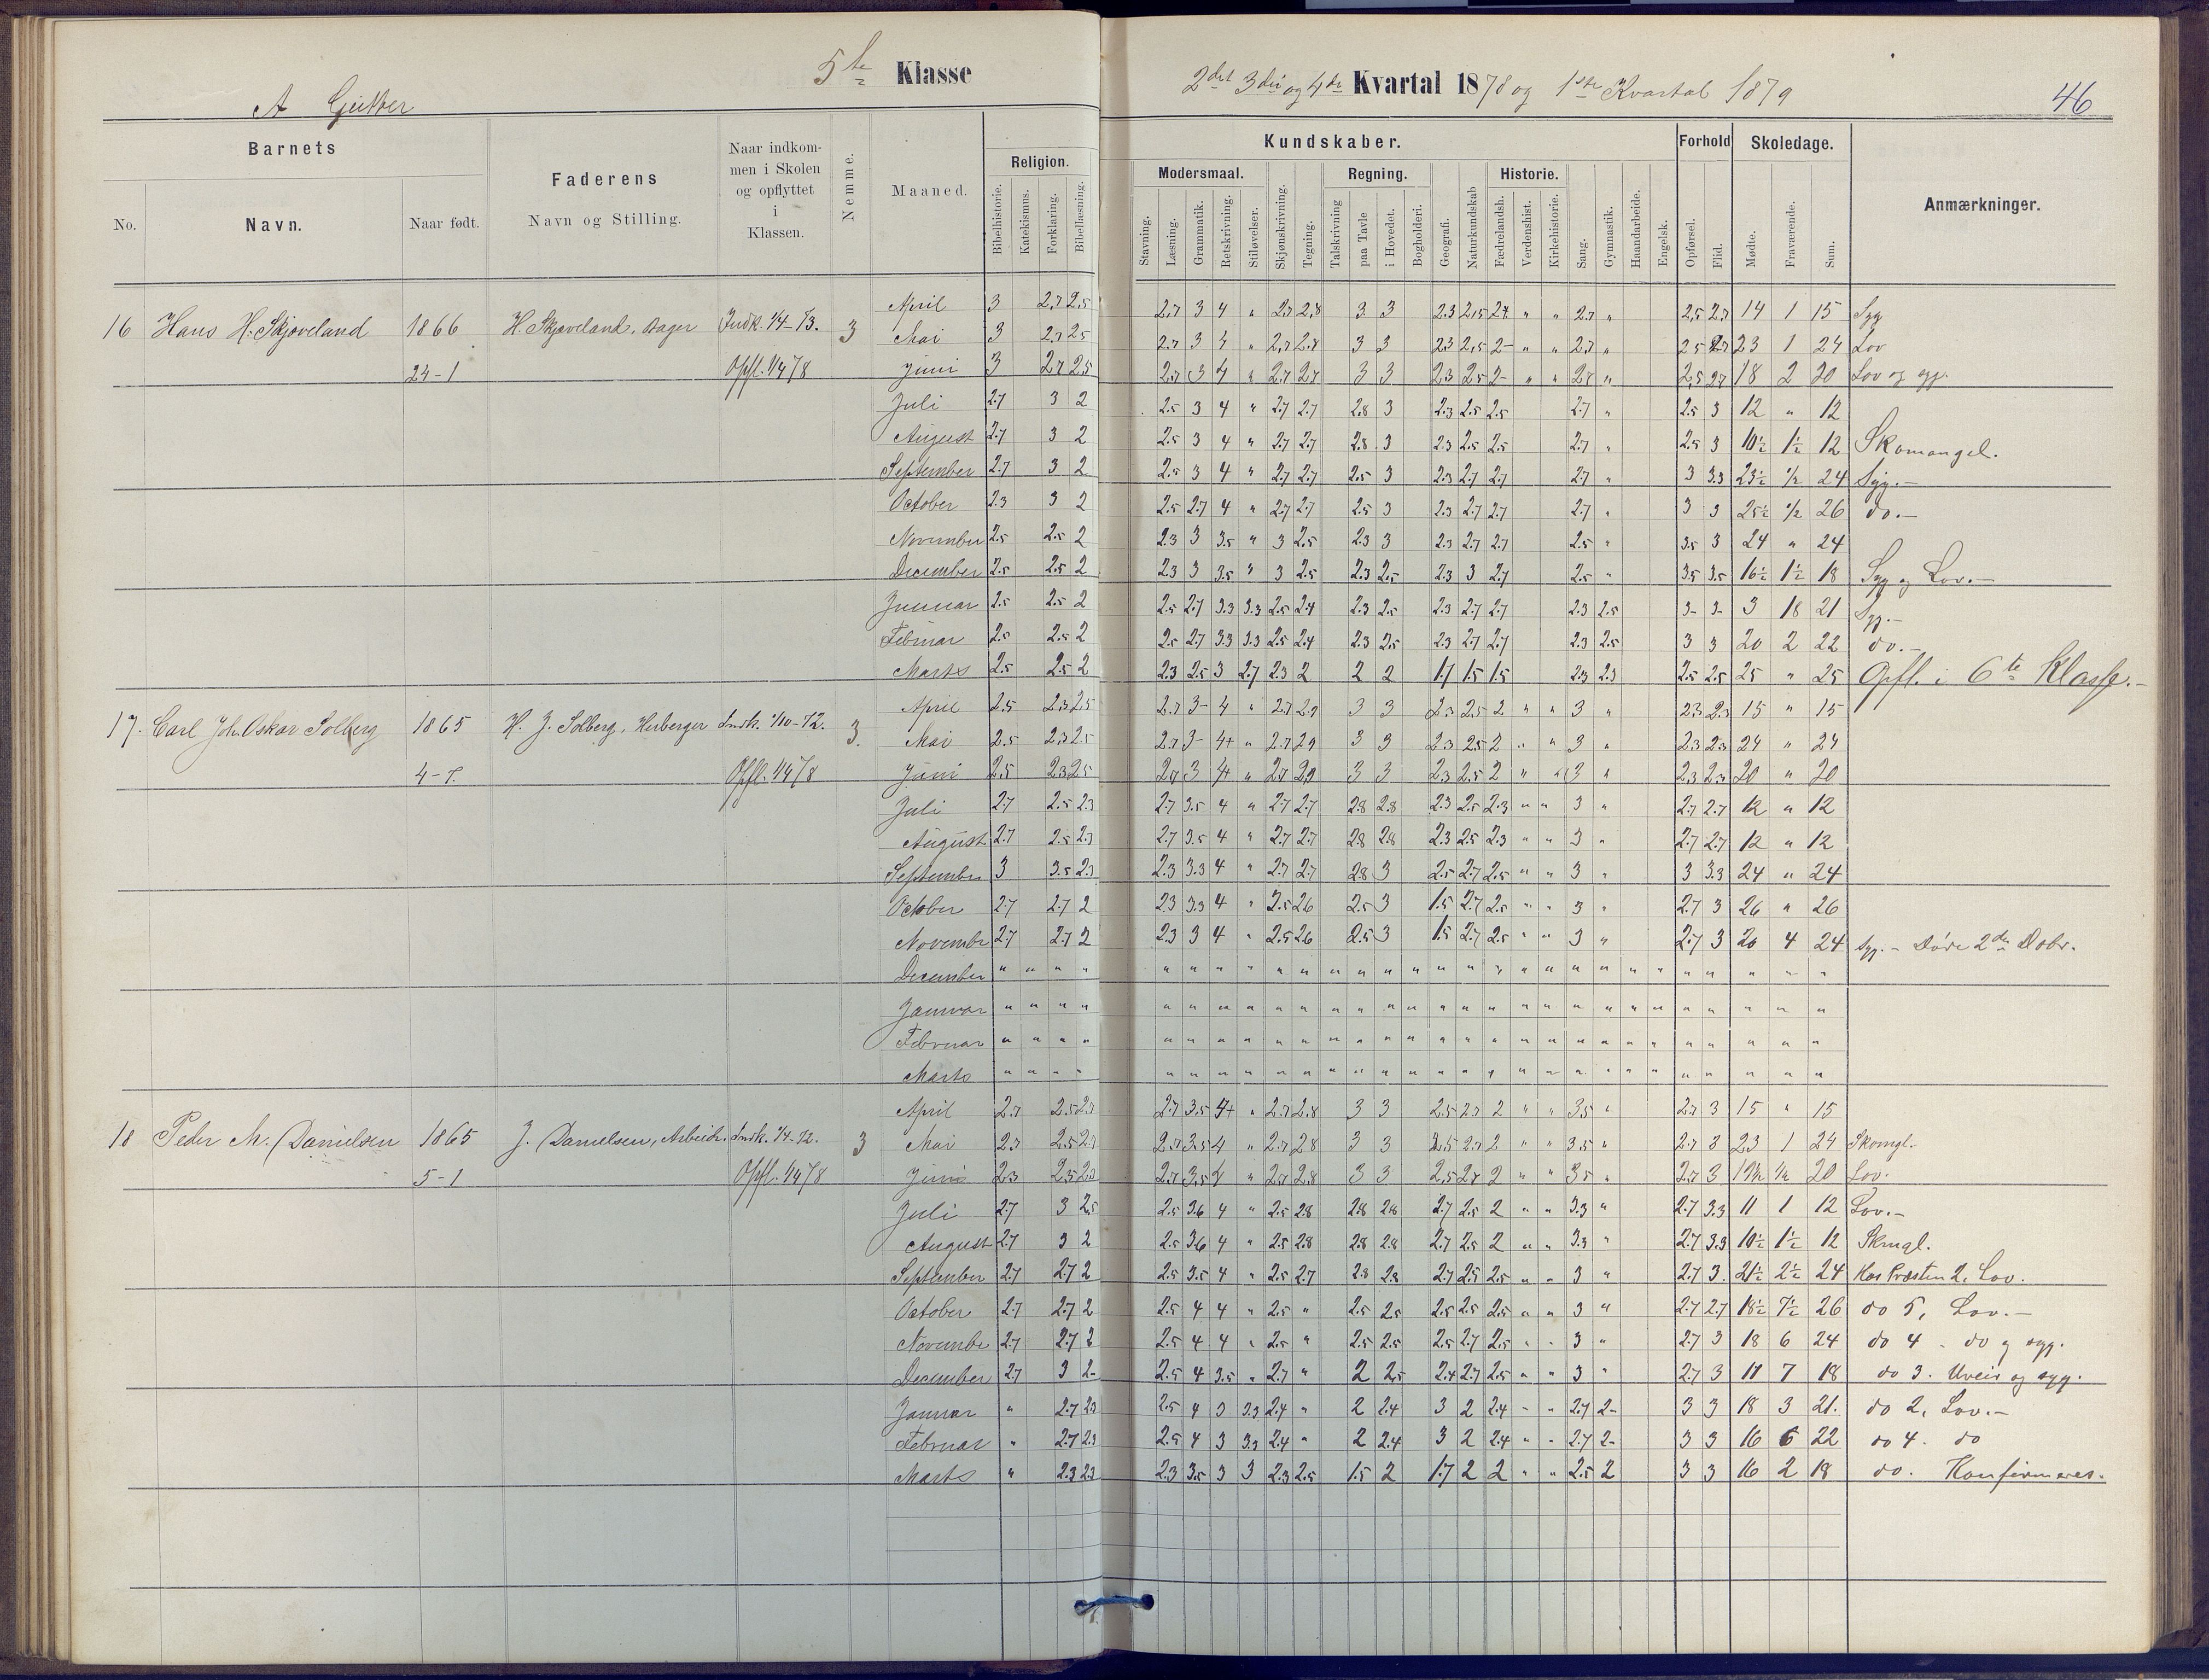 5te Klasse
2det 3die og 4de Kvartal 1878 og 1ste Kvartal 1879
46
A Gutter
Barnets
No.
Navn.
Naar født.
Faderens
Navn og Stilling.
Naar indkom-
men i Skolen
og opflyttet
i
Klassen.
Nemme.
Maaned.
Religion.
Bibelhistorie.
Katekismus.
Forklaring.
Bibellæsning.
Kundskaber.
Modersmaal.
Stavning.
Læsning.
Grammatik.
Retskrivning.
Stiløvelser.
Skjønskrivning.
Tegning.
Regning.
Talskrivning
paa Tavle
i Hovedet.
Bogholderi.
Geografi.
Naturkundskab
Historie.
Fædrelandsh.
Verdenshist.
Kirkehistorie.
Sang.
Gymnastik.
Haandarbeide.
Engelsk.
Forhold
Opførsel.
Flid.
Skoledage.
Mødte.
Fraværende.
Sum.
Anmærkninger.
16 Hans H. Skjøveland 1866 H. Skjøveland, Bager Indk. 1/4-73. 3
24-1 Opfl. 1/4 78
April 3 2.7 2.5 2.7 3 4 " 2.7 2.8 3 3 2.3 2.5 2.7 " " 2.7 " 2.5 2.7 14 1 15 Syg
Mai 3 2.7 2.5 2.7 3 4 " 2.7 2.8 3 3 2.3 2.5 2- " " 2.7 " 2.5 2.7 23 1 24 Lov
Juni 3 2.7 2.5 2.7 3 4 " 2.7 2.7 3 3 2.3 2.5 2- " " 2.8 " 2.5 2.7 18 2 20 Lov og syg.
Juli 2.7 3 2 2.5 3 4 " 2.7 2.7 2.8 3 2.3 2.5 2.5 2.7 " 2.5 3 12 " 12
August 2.7 3 2 2.5 3 4 " 2.7 2.7 2.8 3 2.3 2.5 2.5 2.7 " 2.5 3 10½ 1½ 12 Skomangel.
September 2.7 3 2 2.5 3 4 " 2.7 2.7 2.5 3 2.3 2.7 2.7 2.7 " 3 3.3 23½ 1/2 24 Syg.-
October 2.3 3 2 2.5 2.7 4 " 2.7 2.7 2.5 3 2.3 2.7 2.7 2.7 " 3 3 25½ 1/2 26 do.-
November 2.5 2.5 2 2.3 3 3.5 " 3 2.5 2.3 3 2.3 2.7 2.7 2.5 " 3.5 3 24 " 24
December 2.5 2.5 2 2.3 3 3.5 " 3 2.5 2.3 2.5 2.3 3 2.7 2.5 " 3.5 3.5 16½ 1½ 18 Syg og Lov.-
Januar 2.5 2.5 2 2.5 2.7 3.3 3.3 2.5 2.4 2.3 2.5 2.3 2.7 2.7 2.3 2.5 3- 3- 3 18 21 Syg.-
Februar 2.5 2.5 2 2.5 2.7 3.3 3.3 2.5 2.4 2.3 2.5 2.3 2.7 2.7 2.3 2.5 3 3 20 2 22 do.-
Marts 2.5 2.5 2 2.3 2.5 3 2.7 2.3 2 2 2 1.7 1.5 1.5 2.3 2.3 2.5 2.5 25 " 25 Opfl. i 6te Klasse.-
17. Carl Joh. Oskar Solberg 1865 H. J. Solberg, Herberger Indk. 1/10-72. 3.
4-7. Opfl. 1/4 78
April 2.5 2.3 2.5 2.7 3- 4 " 2.7 2.9 3 3 2.3 2.5 2 " " 3 " 2.3 2.3 15 " 15
Mai 2.5 2.3 2.5 2.7 3- 4+ " 2.7 2.9 3 3 2.3 2.5 2 " " 3 " 2.3 2.3 24 " 24
Juni 2.5 2.3 2.5 2.7 3 4+ " 2.7 2.9 3 3 2.3 2.5 2 " " 3 " 2.3 2.3 20 " 20
Juli 2.7 2.5 2.3 2.7 3.5 4 " 2.7 2.7 2.8 2.8 2.3 2.5 2.3 " " 3 " 2.7 2.7 12 " 12
August 2.7 2.5 2.3 2.7 3.5 4 " 2.7 2.7 2.8 2.8 2.3 2.5 2.3 " " 3 " 2.7 2.7 12 " 12
September 3 3.5 2.3 2.3 3.3 4 " 2.7 2.7 2.8 3 2.5 2.7 2.5 " " 3 " 3 3.3 24 " 24
October 2.7 2.7 2 2.3 3.3 4 " 2.5 2.6 2.5 3 1.5 2.7 2.5 " " 3 " 2.7 3 26 " 26
Novembr 2.7 2.7 2 2.3 3 4 " 2.5 2.6 2.5 3 1.5 2.7 2.5 " " 3 " 2.7 3 20 4 24 syg.- Døde 2den Dcbr.
December " " " " " " " " " " " " " " " " " " " " " " " " " " " "
Januar " " " " " " " " " " " " " " " " " " " " " " " " " " " "
Februar " " " " " " " " " " " " " " " " " " " " " " " " " " " "
Marts " " " " " " " " " " " " " " " " " " " " " " " " " " " "
18 Peder M. Danielsen 1865 J. Danielsen, Arbeidr. Indk. 1/4-72. 3
5-1 Opfl. 1/4 78
April 2.3 2.5 2.3 2.7 3.5 4+ " 2.7 2.8 3 3 2.5 2.7 2 " " 3.5 " 2.7 3 15 " 15
Mai 2.3 2.5 2.3 2.7 3.5 4 " 2.7 2.8 3 3 2.5 2.7 2 " " 3.5 " 2.7 3 23 1 24 Skomgl.
Juni 2.3 2.5 2.3 2.7 3.5 4 " 2.7 2.8 3 3 2.5 2.7 2 " " 3.5 " 2.7 3 19½ ½ 20 Lov.
Juli 2.7 3 2.5 2.5 3.6 4 " 2.5 2.8 2.8 2.8 2.7 2.5 2 " " 3.3 " 2.7 3.3 11 1 12 Lov.-
August 2.7 3 2 2.5 3.6 4 " 2.5 2.8 2.8 2.8 2.7 2.5 2 " " 3.3 " 2.7 3.3 10½ 1½ 12 Skmgl.
September 2.7 2.7 2 2.5 3.5 4 " 2.5 2.7 2.8 2.8 2.7 2.5 2.5 " " 3 " 2.7 3. 21½ 2½ 24 Hos Præsten 2, Lov.
October 2.7 2.7 2 2.5 4 4 " 2.5 " 2.5 2.5 2.5 2.5 2.5 " " 3 " 2.7 2.7 18½ 7½ 26 do 5, Lov.-
Novembr 2.7 2.7 2 2.5 4 4 " 2.5 " 2.5 2.5 2.5 2.7 2.5 " " 3 " 2.7 3 18 6 24 do 4 - do og syg.
December 2.7 3 2- 2.5 4 3.5 " 2.7 " 2 2.5 2.4 2.7 2.5 " " 3 " 2.7 3 11 7 18 do 3. Uveir og syg.
Januar " 2.7 2.3 2.5 4 3 3.3 2.4 " 2 2.4 3 2 2.4 " " 2.7 2- 3 3 18 3 21. do 2, Lov.-
Februar " 2.7 2.3 2.5 4 3 3.3 2.4 " 2 2.4 3 2 2.4 " " 2.7 2- 3 3 16 6 22 do 4. do
Marts " 2.3 2.3 2.3 3.5 3 3 2.3 2.5 1.5 2 1.7 2 2 " " 2.5 2 3 3 16 2 18 do. Konfirmeres.